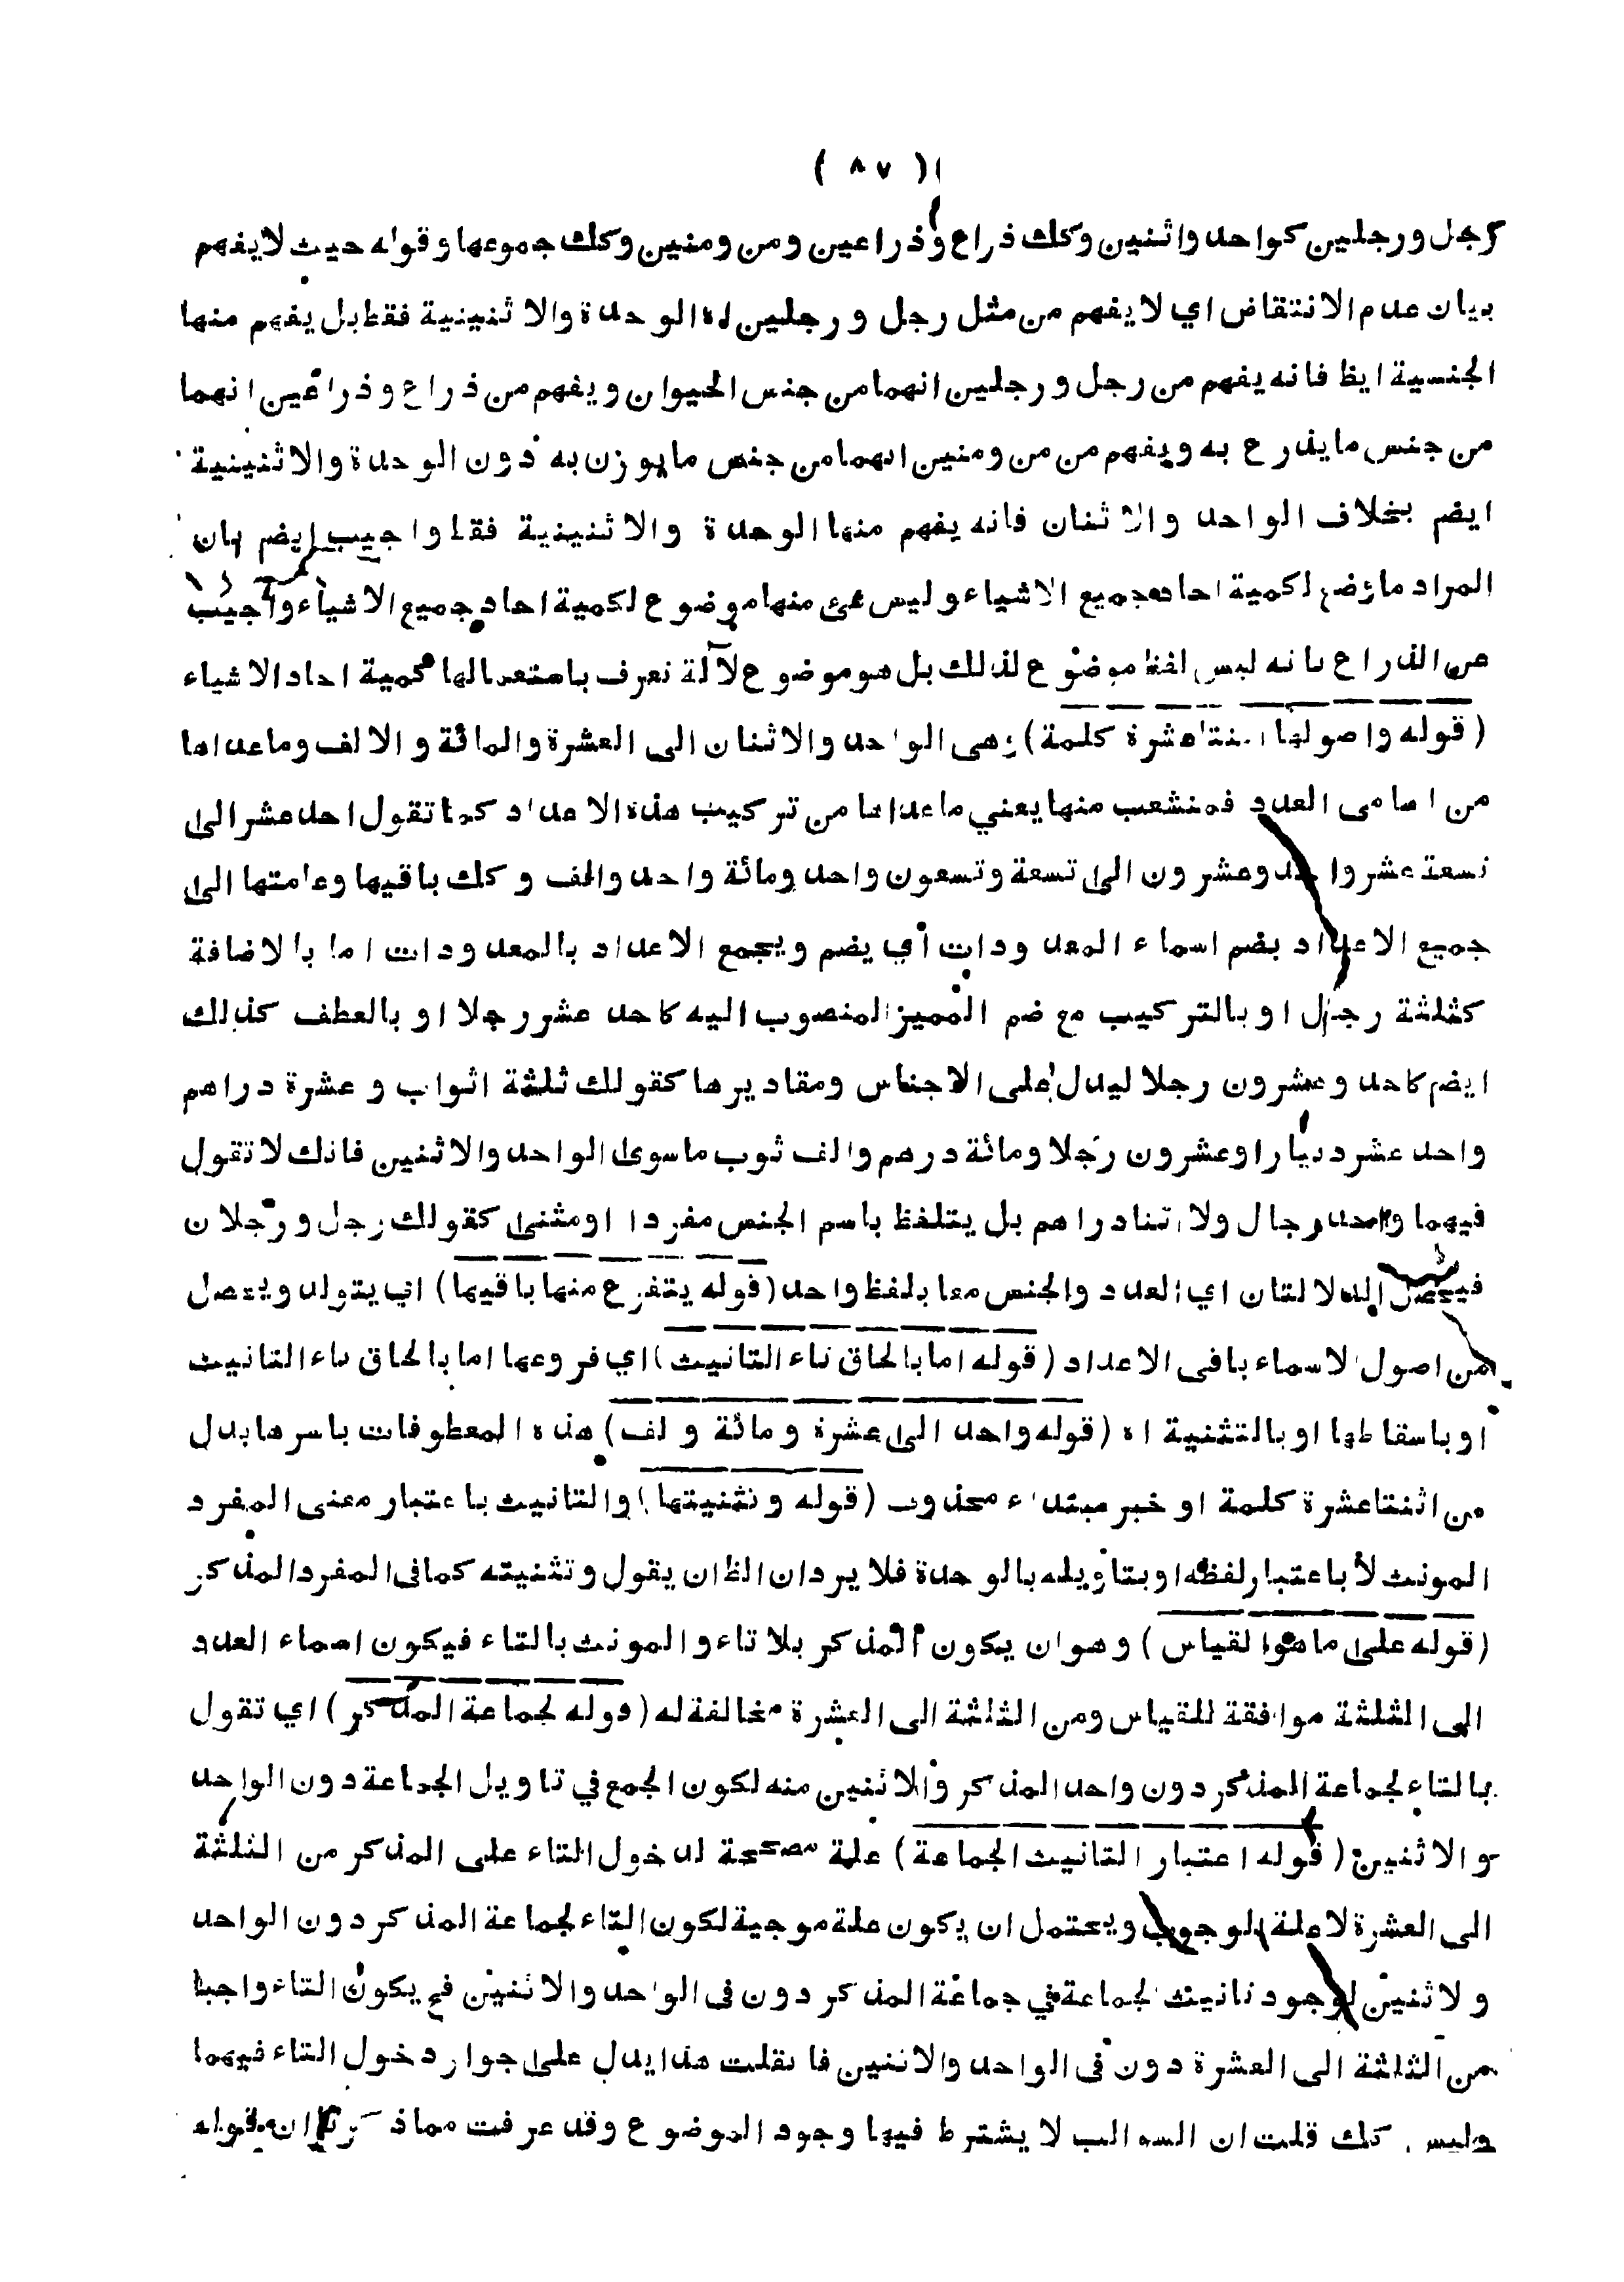 ( ٨٧ )
كرجل ورجلين كواحد واثنين وكك ذراع وذراعين ومن ومنين وكك جموعها وقوله حيث لايفهم
بيان عدم الانتقاض اي لايفهم من مثل رجل ورجلين له الوحدة والاثنينية فقط بل يفهم منها
الجنسية ايظ فانه يفهم من رجل ورجلين انهما من جنس الحيوان ويفهم من ذراع وذراعين انهما
من جنس مايذرع به ويفهم من من ومنين انهما من جنس مايوزن به دون الوحدة والاثنينية
ايضم بخلاف الواحد والاثنان فانه يفهم منها الوحدة والاثنينية فقط واجيب ايضم بان
المراد ماوضع لكمية احاد جميع الاشياء وليس شئ منها موضوع لكمية احاد جميع الاشياء واجيب
عن الذراع بانه ليس لفظ موضوع لذلك بل هو موضوع لآلة نعرف باستعمالها كمية احاد الاشياء
( قوله واصولها اثنتاعشرة كلمة ) وهى الواحد والاثنان الى العشرة والمائة والالف وماعداها
من اسامى العدد فمنشعب منها يعني ماعداها من تركيب هذه الاعداد كما تقول احد عشر الى
تسعة عشر واحد وعشرون الى تسعة وتسعون واحد ومائة واحد والف وكك باقيها وعامتها الى
جميع الاعداد بضم اسماء المعدودات أي يضم ويجمع الاعداد بالمعدودات اما بالاضافة
كثلثة رجال او بالتركيب مع ضم المميز المنصوب اليه كاحد عشر رجلا او بالعطف كذلك
ايضم كاحد وعشرون رجلا ليدل على الاجناس ومقاديرها كقولك ثلثة اثواب وعشرة دراهم
واحد عشر دينارا وعشرون رجلا ومائة درهم والف ثوب ماسوى الواحد والاثنين فانك لاتقول
فيهما واحد رجال ولا اثنا دراهم بل يتلفظ باسم الجنس مفردا اومثنى كقولك رجل ورجلان
فيحصل الدلالتان اي العدد والجنس معا بلفظ واحد ( قوله يتفرع منها باقيها ) اي يتولد ويحصل
من اصول الاسماء باقى الاعداد ( قوله اما بالحاق تاء التانيث ) اي فروعها اما بالحاق تاء التانيث
او باسقاطها او بالتثنية اه ( قوله واحد الى عشرة ومائة والف ) هذه المعطوفات باسرها بدل
من اثنتاعشرة كلمة او خبر مبتداء محذوف ( قوله وتثنيتها ) والتانيث باعتبار معنى المفرد
المونث لأباعتبار لفظه او بتاويله بالوحدة فلا يرد ان الظ ان يقول وتثنيته كما فى المفرد المذكر
( قوله على ماهوالقياس ) وهو ان يكون المذكر بلا تاء والمونث بالتاء فيكون اسماء العدد
الى الثلثة موافقة للقياس ومن الثلثة الى العشرة مخالفة له ( قوله لجماعة المذكر ) اي تقول
بالتاء لجماعة المذكر دون واحد المذكر والاثنين منه لكون الجمع في تاويل الجماعة دون الواحد
والاثنين ( قوله اعتبار التانيث الجماعة ) علة مصححة لدخول التاء على المذكر من الثلثة
الى العشرة لاعلة الوجوب ويحتمل ان يكون علة موجبة لكون التاء لجماعة المذكر دون الواحد
ولاثنين لوجود تانيث الجماعة في جماعة المذكر دون فى الواحد والاثنين فح يكون التاء واجبا
من الثلثة الى العشرة دون فى الواحد والاثنين فا نقلت هذا يدل على جواز دخول التاء فيهما
وليس كك قلت ان السوالب لا يشترط فيها وجود الموضوع وقد عرفت مماذكرنا ان قوله